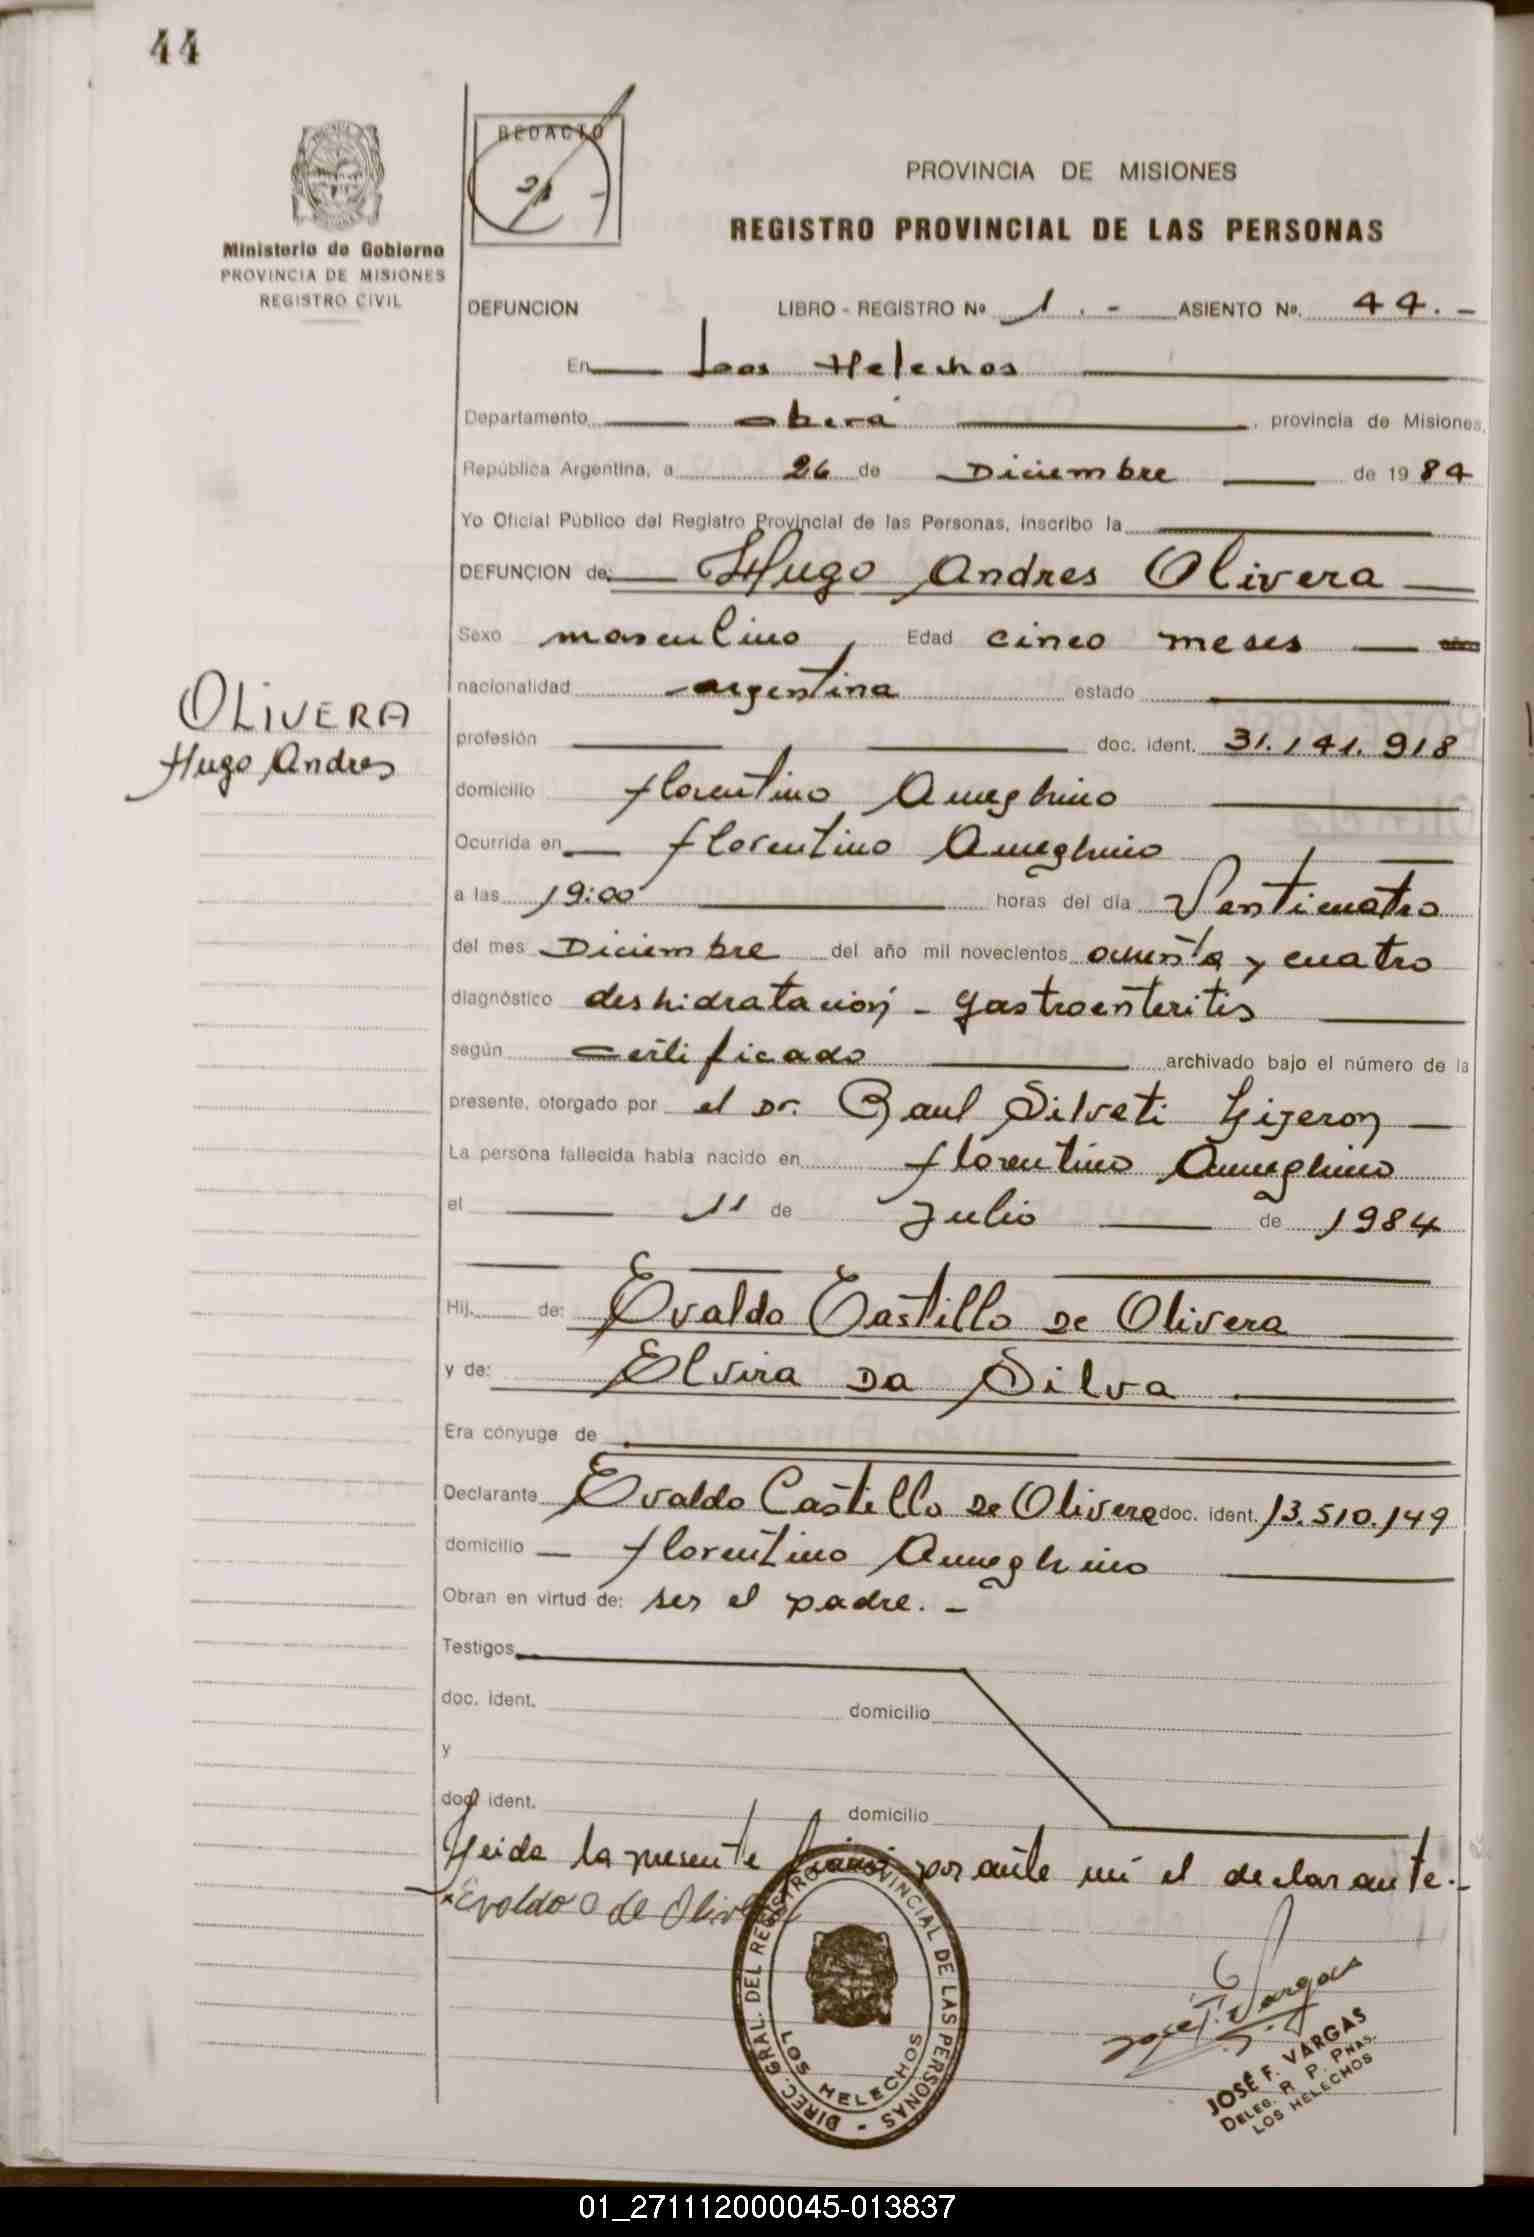 44
REDACTO
Ministerio de Gobierno
PROVINCIA DE MISIONES
REGISTRO CIVIL
PROVINCIA DE MISIONES
REGISTRO PROVINCIAL DE LAS PERSONAS
DEFUNCION LIBRO - REGISTRO Nº 1. - ASIENTO Nº. 44. -
En Los Helechos
Departamento oberá, provincia de Misiones,
República Argentina, a 26 de Diciembre de 1984
Yo Oficial Público del Registro Provincial de las Personas, inscribo la
DEFUNCION de: Hugo Andres Olivera
Sexo masculino, Edad cinco meses
nacionalidad argentina estado
OLIVERA
Hugo Andres
profesión doc. ident. 31.141.918
domicilio florentino Ameghino
Ocurrida en florentino Ameghino
a las 19:00 horas del día Venticuatro
del mes Diciembre del año mil novecientos ochenta y cuatro
diagnóstico deshidratación - gastroenteritis
según certificado archivado bajo el número de la
presente, otorgado por el Dr. Raul Silveti
La persona fallecida había nacido en florentino Ameghino
el 11 de Julio de 1984
Hij de: Evaldo Castillo de Olivera
y de: Elvira Da Silva
Era cónyuge de
Declarante Evaldo Castillo de Olivera doc. ident. 13.510.149
domicilio florentino Ameghino
Obran en virtud de: ser el padre. -
Testigos
doc. ident. domicilio
y
doc. ident. domicilio
Leida la presente firma por ante mi el declarante. -
Evaldo C de Olivera
DIREC. GRAL. DEL REGISTRO PROVINCIAL DE LAS PERSONAS -
LOS HELECHOS
José F. Vargas
JOSÉ F. VARGAS
DELEG. R. P. PNAS.
LOS HELECHOS
01_271112000045-013837